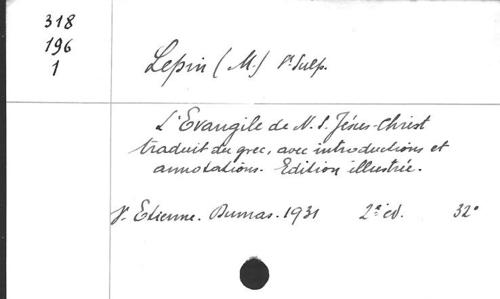 318
196
1
Lepin (M.) Pr Sulp.
L'Evangile de N. S. Jésus-Christ
traduit du grec, avec introductions et
annotations. Edition illustrée.
St Etienne. Dumas. 1931 2e ed. 32°